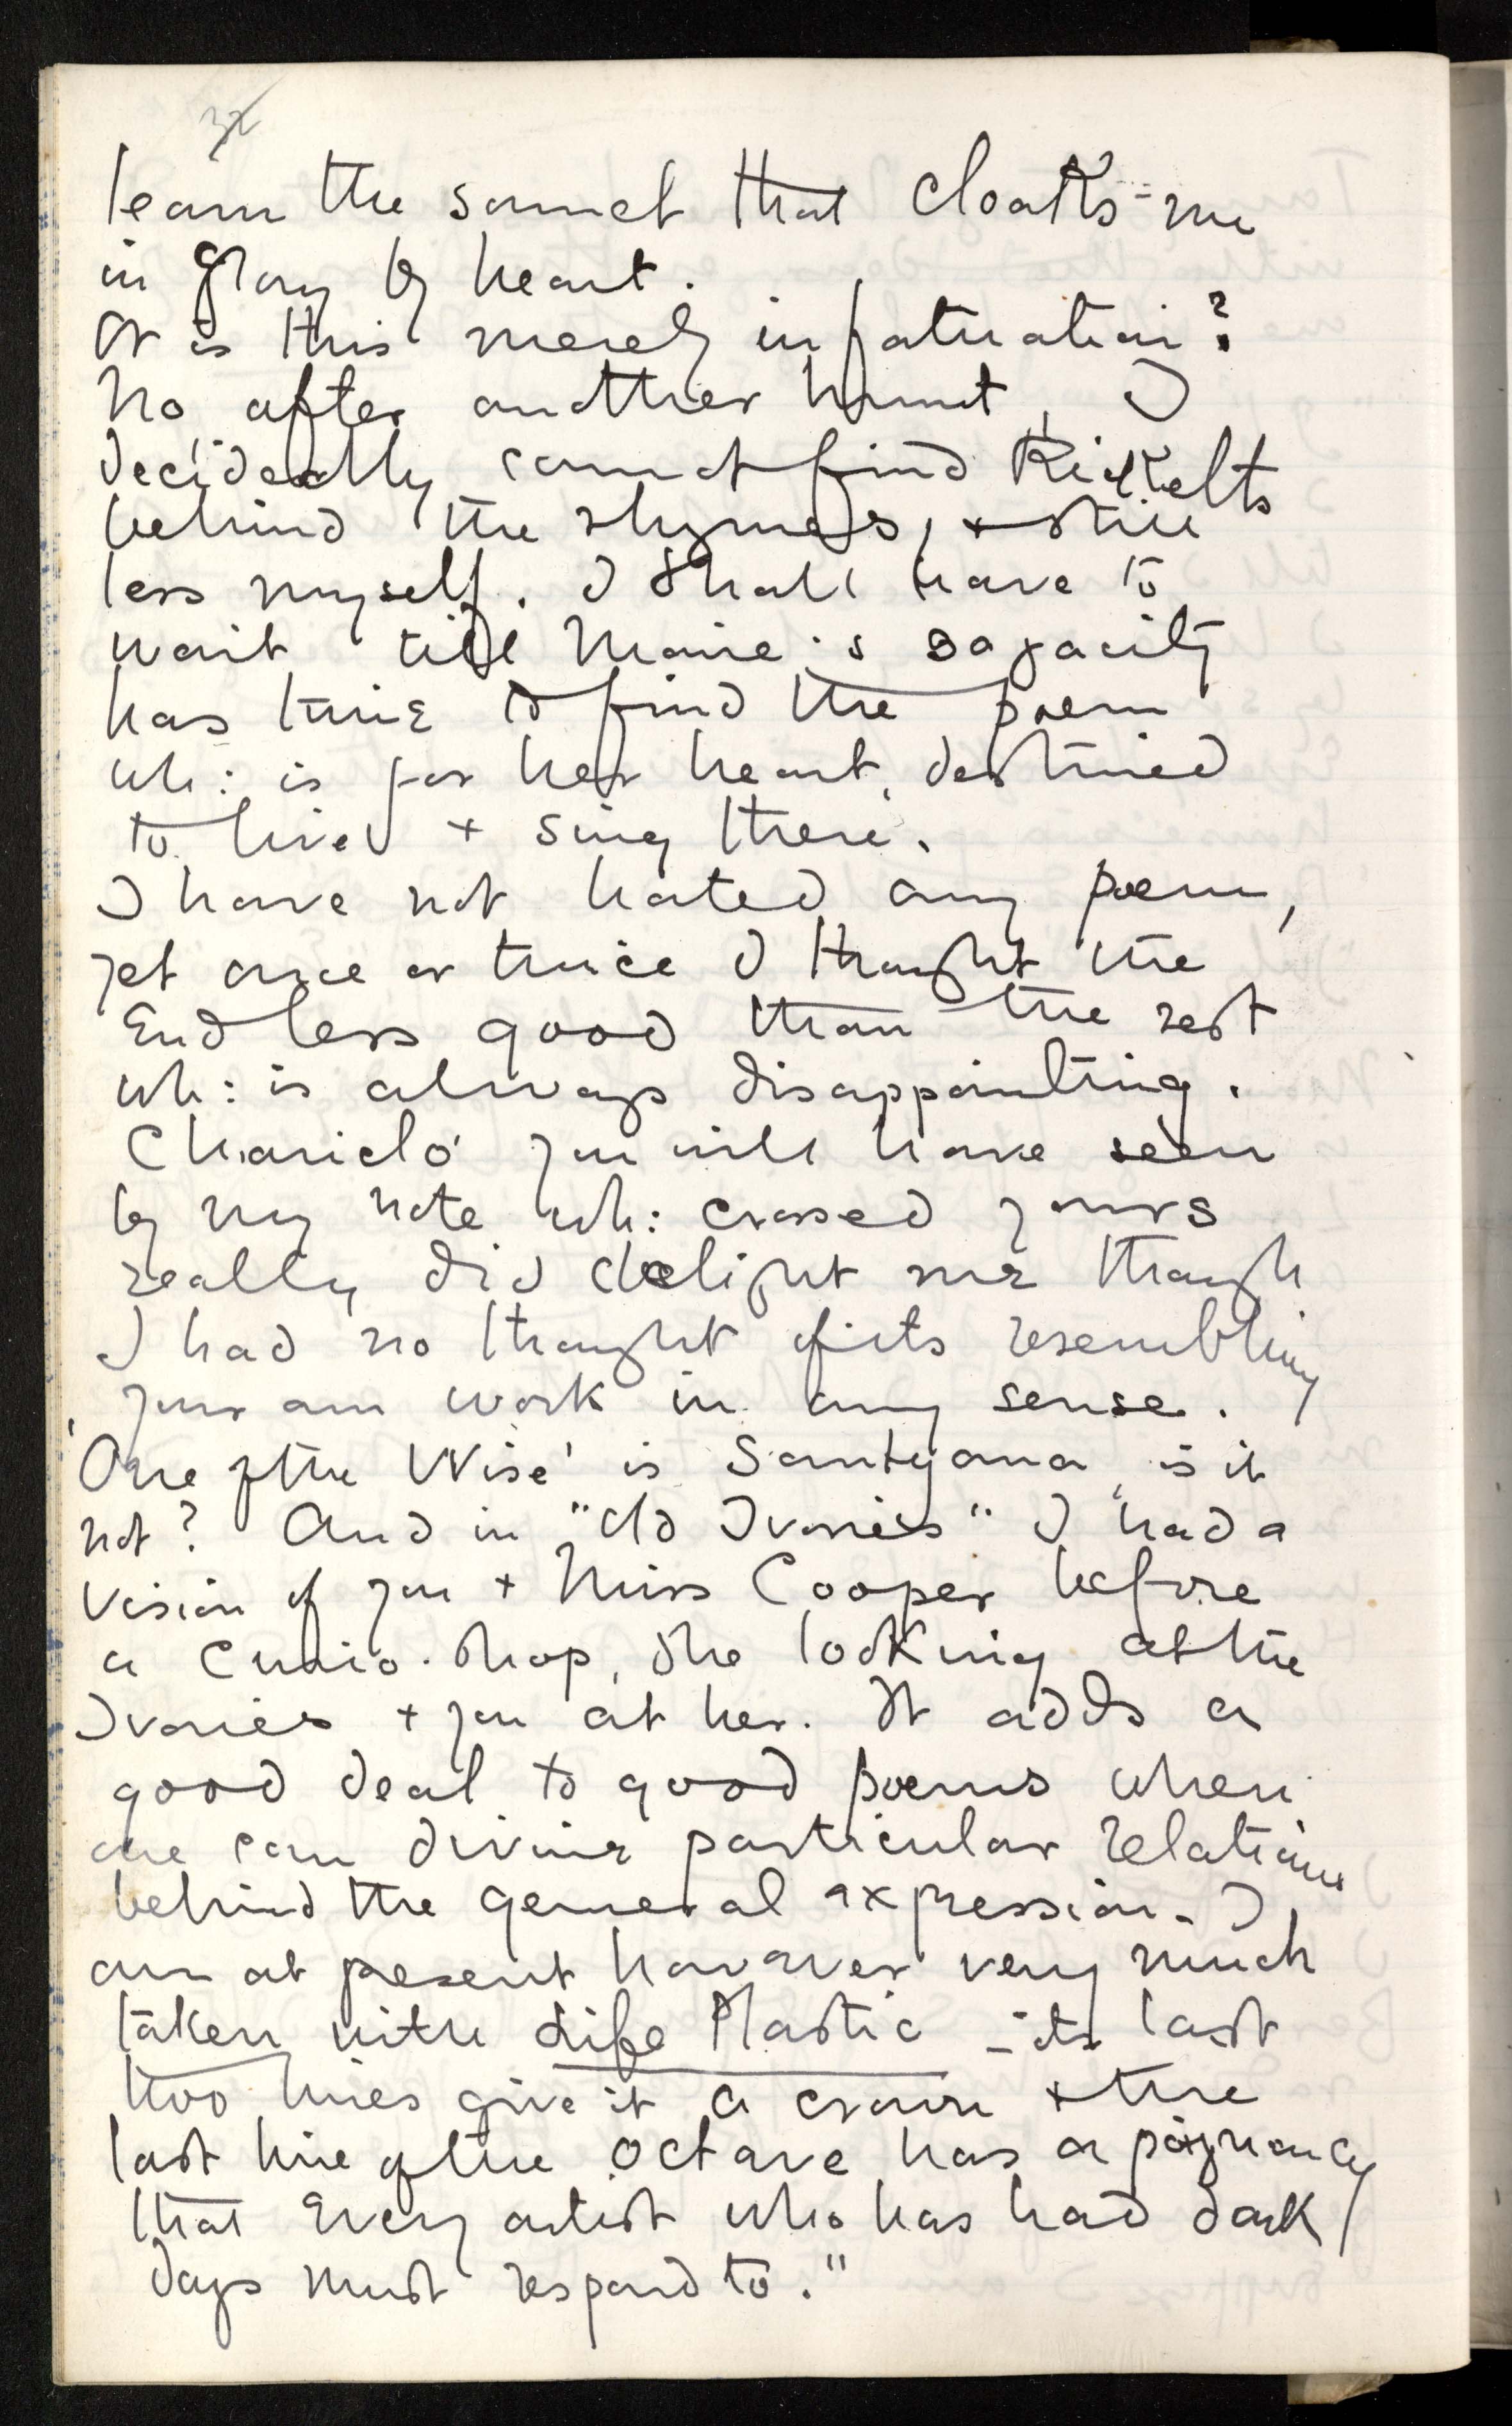 32
learn the sonnet that cloaths me
in glory by heart.
Or is this merely infatuation?
No after another hunt, I
decidedly cannot find Ricketts
behind the rhymes, + still
less myself. I shall have to
wait till Marie's sagacity
has time to find the poem
wh: is for her heart, destined
to live + sing there.
I have not hated any poem,
yet once or twice I thought the
End less good than the rest
wh: is always disappointing.
Chariclo you will have seen
by my note wh: crossed yours
really did delight me though
I had no thought of its resembling
your own work in any sense.
'One of the Wise' is Santyana, is it
not? And in "Old Ivories" I had a
vision of you + Miss Cooper before
a curio-shop, she looking at the
Ivories + you at her. It adds a
good deal to good poems when
one can divine particular relations
behind the general expression. I
am at present however very much
taken with Life Plastic - its last
two lines give it a crown + the
last line of the octave has a poignancy
that Every artist who has had dark
days must respond to."